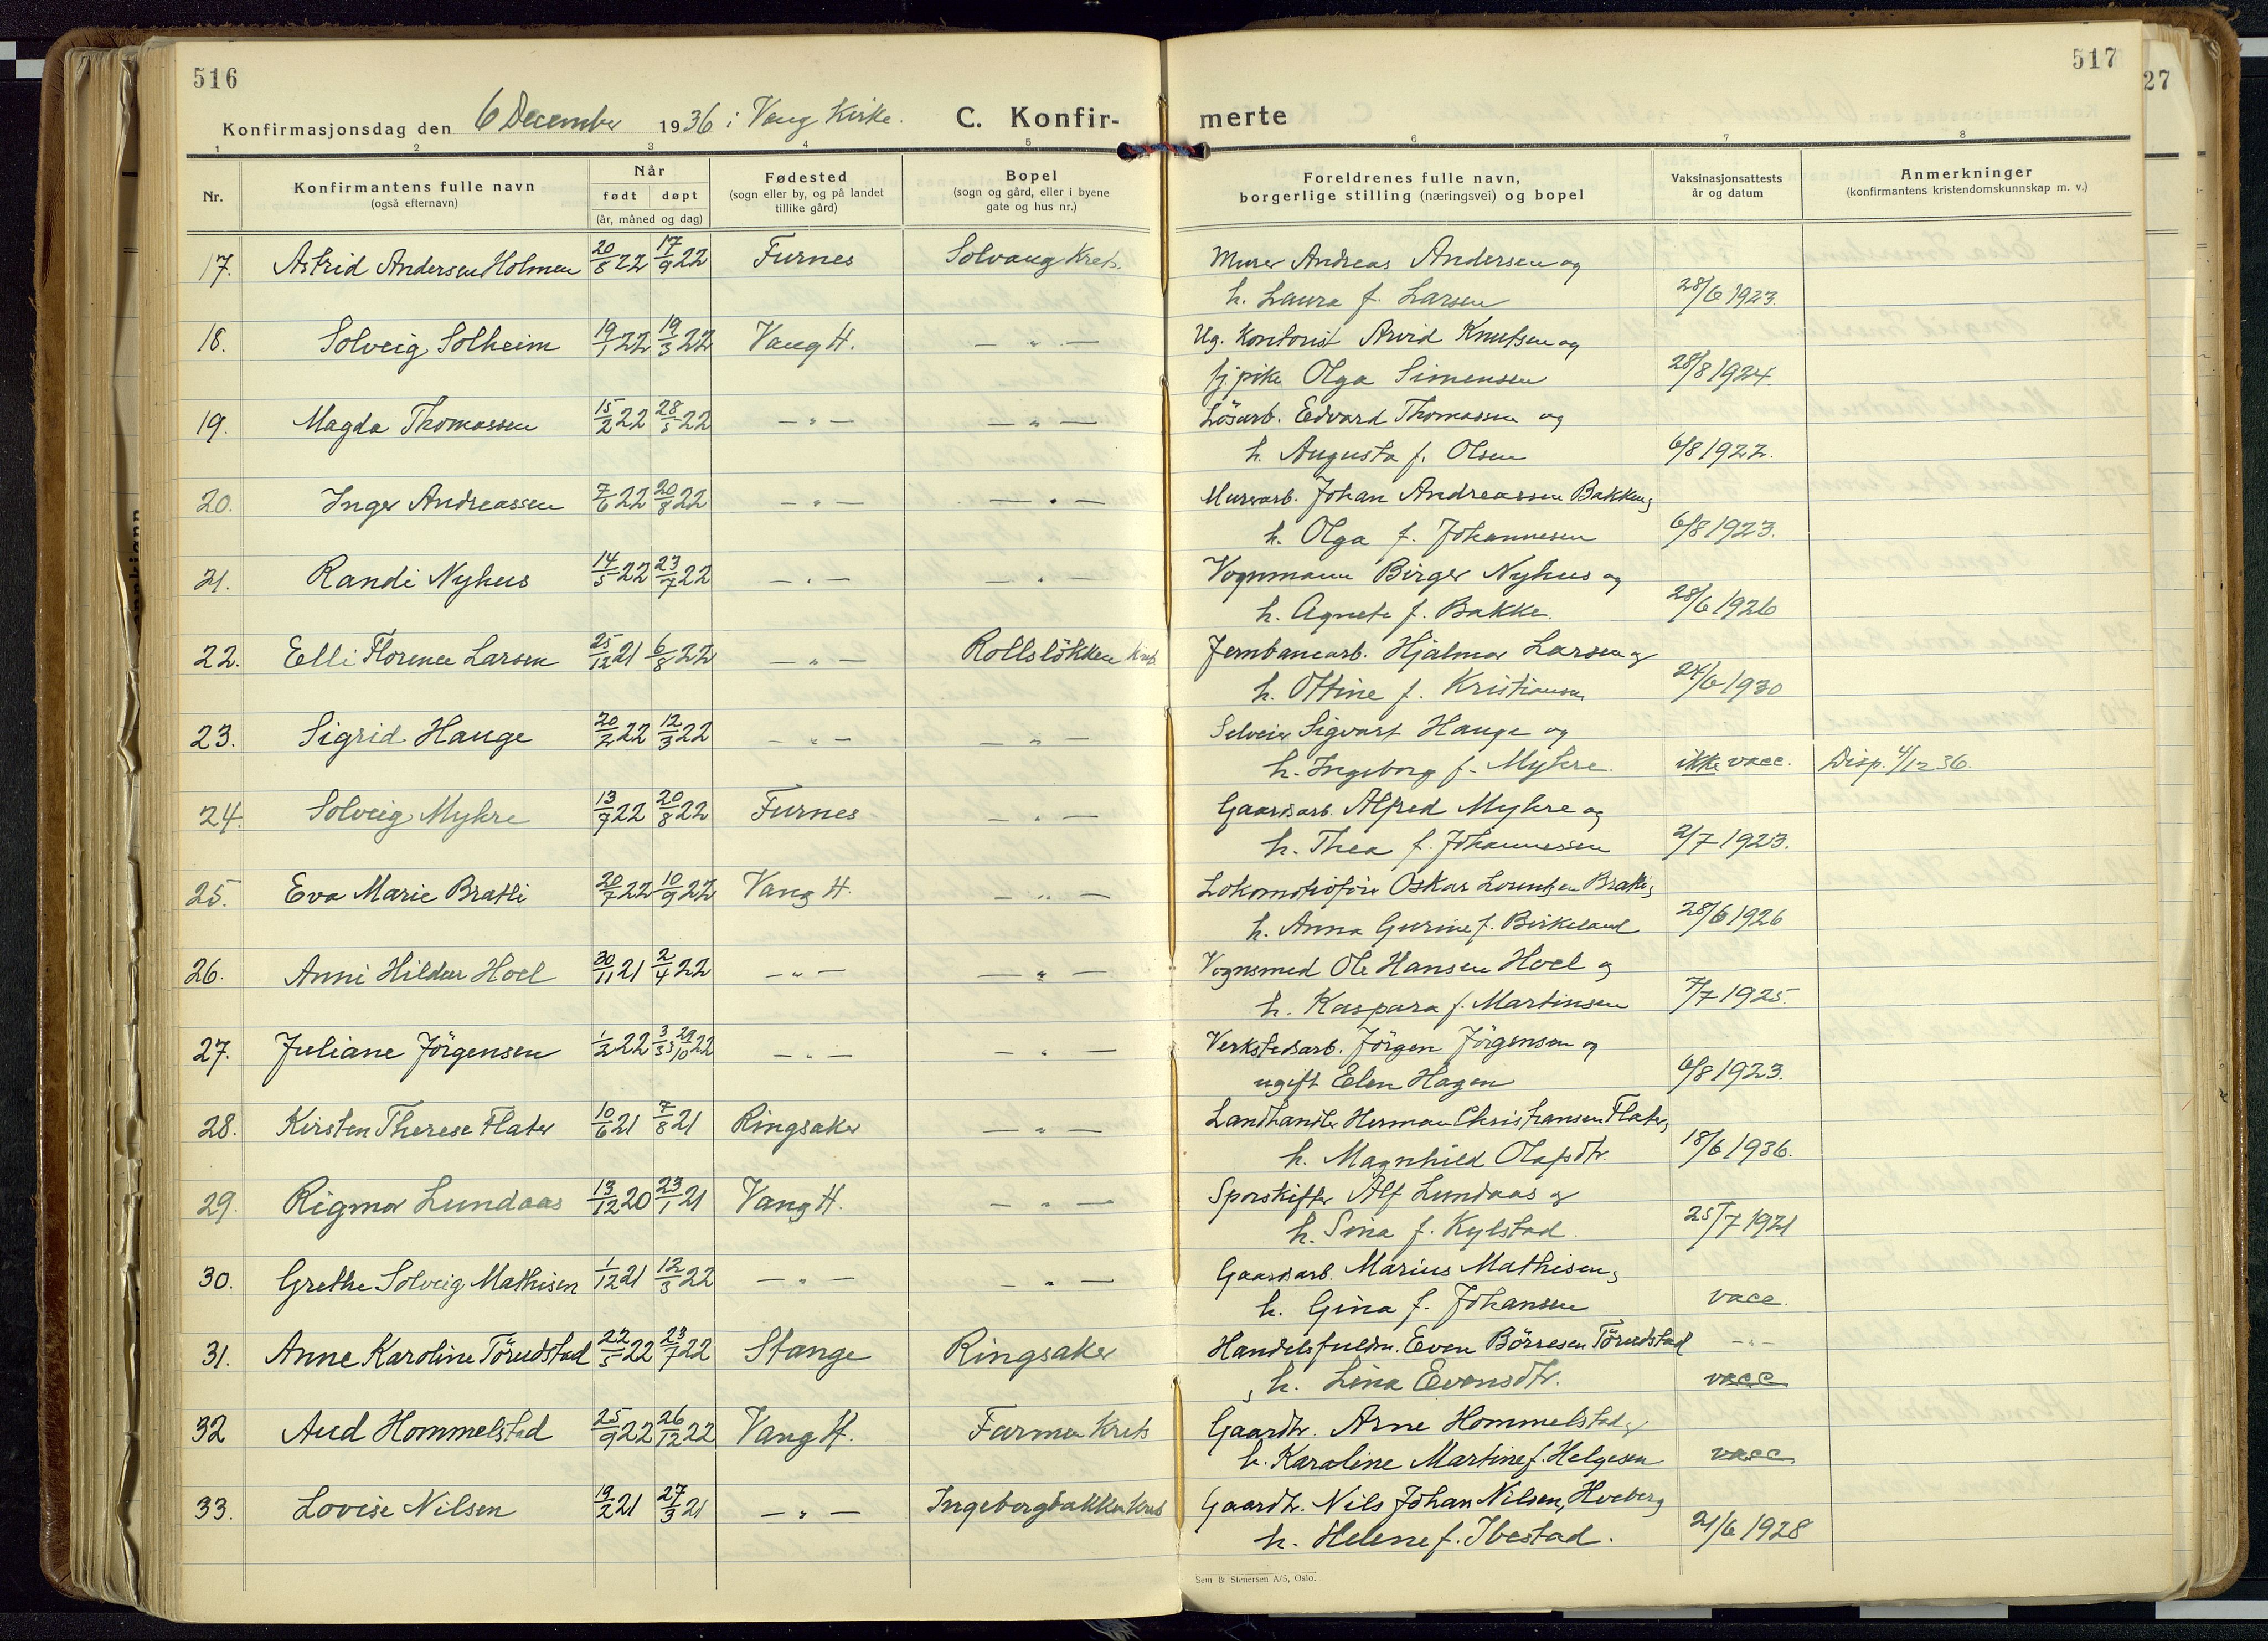 516
517
27
Konfirmasjonsdag den 6 December 1936 i Vang Kirke. C. Konfir- merte
1 2 3 4 5 6 7 8
Nr. Konfirmantens fulle navn (også efternavn) Når født døpt (år, måned og dag) Fødested (sogn eller by, og på landet tillike gård) Bopel (sogn og gård, eller i byene gate og hus nr.) Foreldrenes fulle navn, borgerlige stilling (næringsvei) og bopel Vaksinasjonsattests år og datum Anmerkninger (konfirmantens kristendomskunnskap m. v.)
17. Astrid Andersen Holmen 20/8 22 17/9 22 Furnes Solvang Krets. Murer Andreas Andersen og
h. Laura f. Larsen 28/6 1923.
18. Solveig Solheim 19/1 22 19/3 22 Vang H. — " — Ug. Kontorist Arvid Knutsen og
fj. pike Olga Simensen 28/8 1924.
19. Magda Thomassen 15/2 22 28/5 22 — " — — " — Lösarb. Edvard Thomassen og
h. Augusta f. Olsen 6/8 1922.
20. Inger Andreassen 7/6 22 20/8 22 — " — — " — Murerarb. Johan Andreassen Bakken og
h. Olga f. Johannesen 6/8 1923.
21. Randi Nyhus 14/5 22 23/7 22 — " — — " — Vognmann Birger Nyhus og
h. Agnete f. Bakke. 28/6 1926
22. Elli Florence Larsen 25/12 21 6/8 22 — " — Rollsløkken Krets Jernbanearb. Hjalmar Larsen og
h. Ottine f. Kristiansen 24/6 1930
23. Sigrid Hauge 20/2 22 12/3 22 — " — — " — Selveier Sigvart Hauge og
h. Ingeborg f. Myhre. ikke vacc. Disp. 4/12 36.
24. Solveig Myhre 13/7 22 20/8 22 Furnes — " — Gaardsarb. Alfred Myhre og
h. Thea f. Johannessen 2/7 1923.
25. Eva Marie Bratli 20/7 22 10/9 22 Vang H. — " — Lokomotivförer Oskar Lorentsen Bratli og
h. Anna Gurine f. Birkeland 28/6 1926
26. Anni Hildur Hoel 30/11 21 2/4 22 — " — — " — Vognsmed Ole Hansen Hoel og
h. Kaspara f. Martinsen 7/7 1925.
27. Juliane Jörgensen 1/2 22 3/33 29/10 22 — " — — " — Verkstedsarb. Jörgen Jörgensen og
ugift Elen Hagen 6/8 1923.
28. Kirsten Therese Flater 10/6 21 7/8 21 Ringsaker — " — Landhandler Herman Christiansen Flater,
h. Magnhild Olafsdtr. 18/6 1936.
29. Rigmor Lundaas 13/12 20 23/1 21 Vang H. — " — Sporskifter Alf Lundaas og
h. Sina f. Kylstad. 25/7 1921
30. Grethe Solveig Mathisen 1/12 21 12/3 22 — " — — " — Gaardsarb. Marius Mathisen og
h. Gina f. Johansen vacc.
31. Anne Karoline Törudstad 22/5 22 23/7 22 Stange Ringsaker Handelsfuldm. Even Börresen Törudstad — " —
, h. Lina Evensdtr. vacc
32 Aud Hommelstad 25/9 22 26/12 22 Vang H. Farmen Krets Gaardbr. Arne Hommelstad og
h. Karoline Martine f. Helgesen vacc
33. Lovise Nilsen 19/2 21 27/3 21 — " — Ingeborgbakken Krets Gaardbr. Nils Johan Nilsen, Hoeberg
h. Helene f. Ibestad. 21/6 1928
Sem & Stenersen A/S, Oslo.